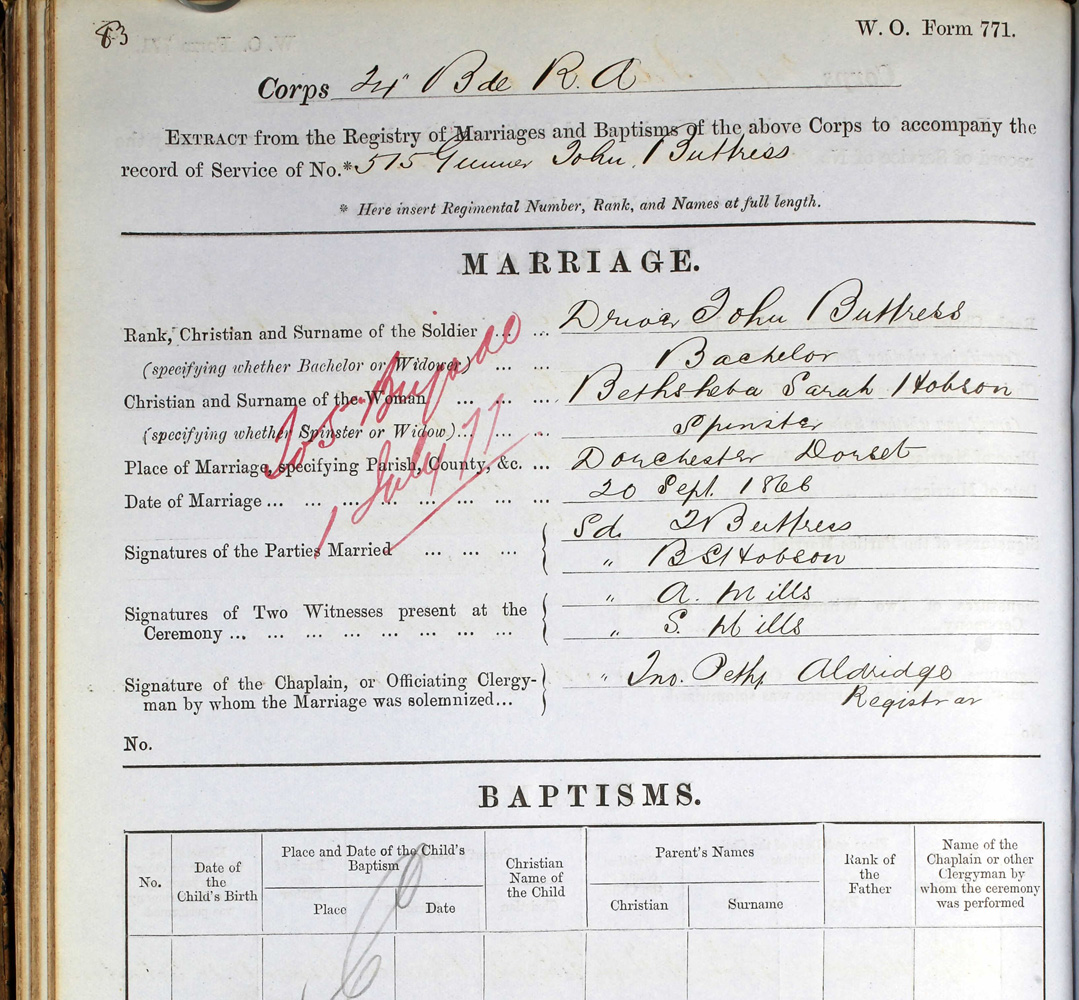 83
W. O. Form 771.
Corps Bde R. A
EXTRACT from the Registry of Marriages and Baptisms of the above Corps to accompany the
record of Service of No.* 575 Gunner John Buttress
* Here insert Regimental Number, Rank, and Names at full length.
MARRIAGE.
Rank, Christian and Surname of the Soldier ... ... Driver John Buttress
(specifying whether Bachelor or Widower) ... ... Bachelor
Christian and Surname of the Woman ... ... ... Bethsheba Sarah Hobson
(specifying whether Spinster or Widow)... ... ... Spinster
Place of Marriage, specifying Parish, County, &c. ... Dorchester Dorset
Date of Marriage ... ... ... ... ... ... ... ... 20 Sept. 1866
To 5 Brigade
1 July 77
Signatures of the Parties Married ... ... ... { Sd. J Buttress
" B S Hobson
Signatures of Two Witnesses present at the
Ceremony ... ... ... ... ... ... ... ... { " A. Mills
" S. Mills
Signature of the Chaplain, or Officiating Clergy-
man by whom the Marriage was solemnized... } " Jno. Aldridge
Registrar
No.
BAPTISMS.
No.
Date of
the
Child's Birth
Place and Date of the Child's
Baptism
Place
Date
Christian
Name of
the Child
Parent's Names
Christian
Surname
Rank of
the
Father
Name of the
Chaplain or other
Clergyman by
whom the ceremony
was performed